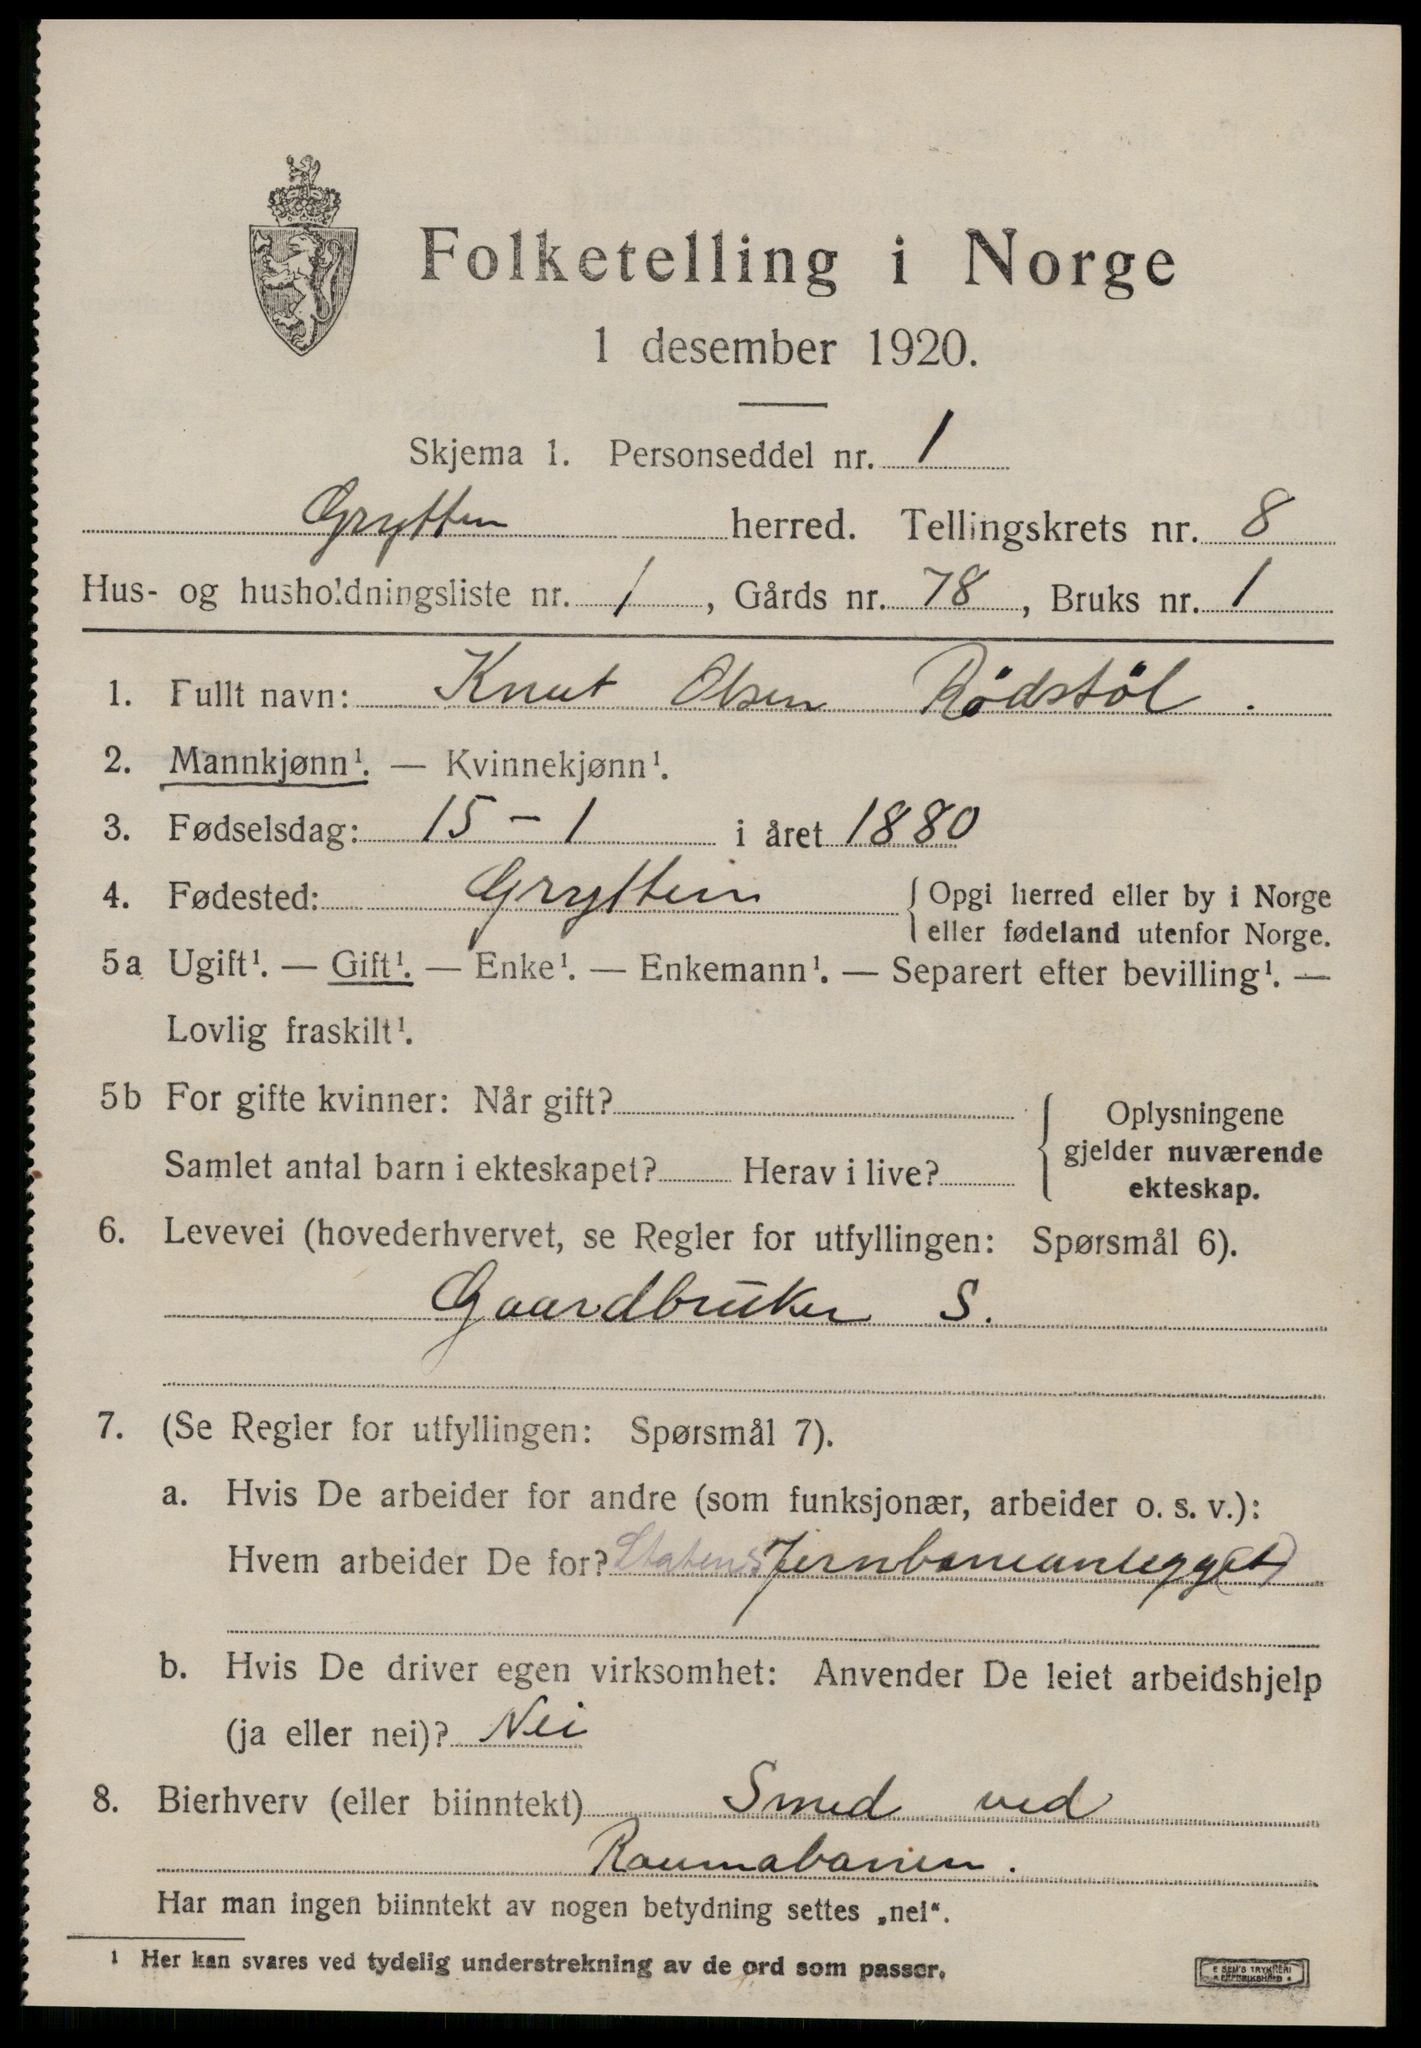 Folketelling i Norge
1 desember 1920.
Skjema 1. Personseddel nr. 1
Grytten herred. Tellingskrets nr. 8
Hus- og husholdningsliste nr. 1, Gårds nr. 78, Bruks nr. 1
1. Fullt navn: Knut Olsen Rödstöl.
2. Mannkjønn¹. — Kvinnekjønn¹.
3. Fødselsdag: 15-1 i året 1880
4. Fødested: Grytten { Opgi herred eller by i Norge
eller fødeland utenfor Norge.
5a Ugift¹. — Gift¹. — Enke¹. — Enkemann¹. — Separert efter bevilling¹. —
Lovlig fraskilt¹.
5b For gifte kvinner: Når gift?
Samlet antal barn i ekteskapet? Herav i live?
Oplysningene
gjelder nuværende
ekteskap.
6. Levevei (hovederhvervet, se Regler for utfyllingen: Spørsmål 6).
Gaardbruker S.
7. (Se Regler for utfyllingen: Spørsmål 7).
a. Hvis De arbeider for andre (som funksjonær, arbeider o. s. v.):
Hvem arbeider De for? Statens Jernbaneanlegg(et)
b. Hvis De driver egen virksomhet: Anvender De leiet arbeidshjelp
(ja eller nei)? Nei
8. Bierhverv (eller biinntekt) Smed ved
Raumabanen.
Har man ingen biinntekt av nogen betydning settes „nei“.
1 Her kan svares ved tydelig understrekning av de ord som passer.
SEM'S TRYKKERI
FREDRIKSHALD